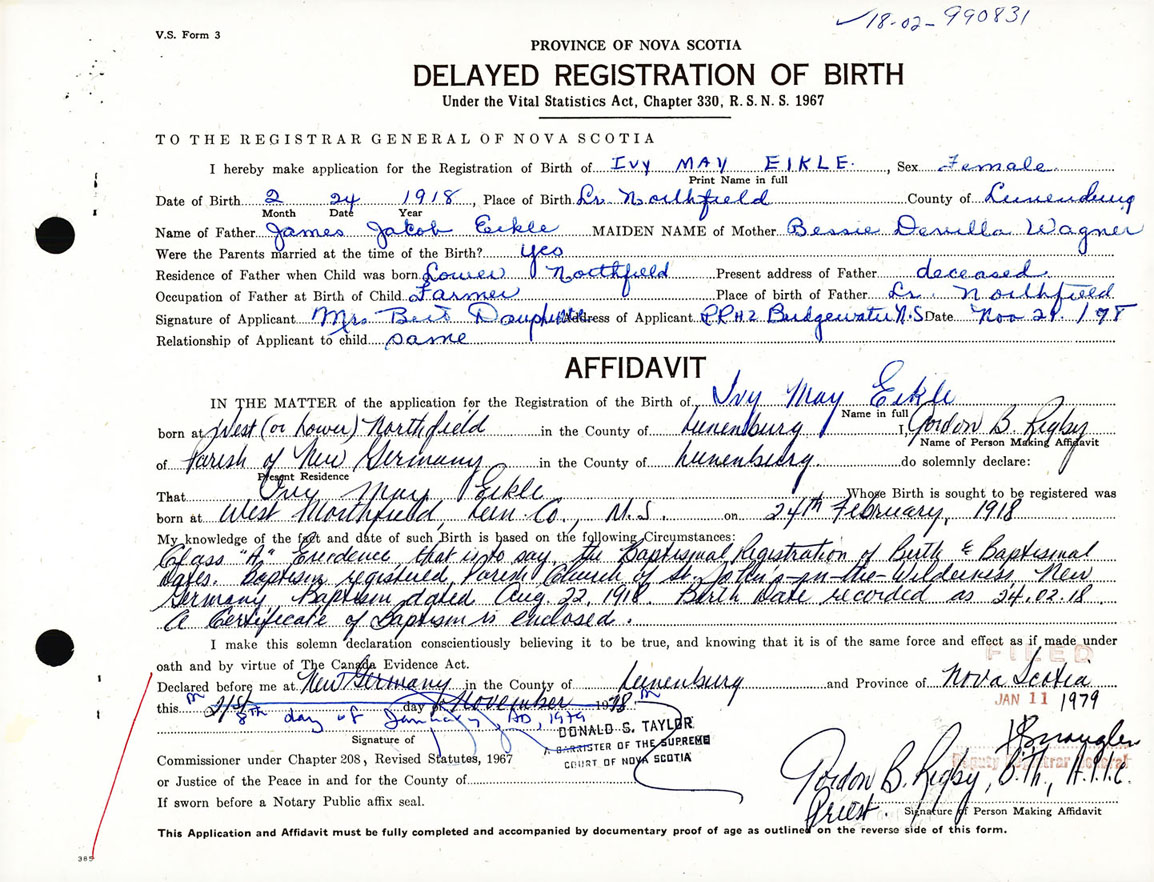 18-02-990831
V.S. Form 3
PROVINCE OF NOVA SCOTIA
DELAYED REGISTRATION OF BIRTH
Under the Vital Statistics Act, Chapter 330, R.S.N.S. 1967
TO THE REGISTRAR GENERAL OF NOVA SCOTIA
I hereby make application for the Registration of Birth of IVY MAY EIKLE, Sex Female
Print Name in full
Date of Birth 2 24 1918, Place of Birth Lr. Northfield County of Lunenburg
Month Date Year
Name of Father James Jacob Eikle MAIDEN NAME of Mother Bessie Dervilla Wagner
Were the Parents married at the time of the Birth? yes
Residence of Father when Child was born Lower Northfield Present address of Father deceased
Occupation of Father at Birth of Child Farmer Place of birth of Father Lr. Northfield
Signature of Applicant Mrs Bert Dauphinee Address of Applicant R.R.#2 Bridgewater N.S Date Nov 21. 1978
Relationship of Applicant to child same
AFFIDAVIT
IN THE MATTER of the application for the Registration of the Birth of Ivy May Eikle
Name in full
born at West (or Lower) Northfield in the County of Lunenburg I, Gordon B. Rigby
Name of Person Making Affidavit
of Parish of New Germany in the County of Lunenburg do solemnly declare:
Present Residence
That Ivy May Eikle Whose Birth is sought to be registered was
born at West Northfield, Lun. Co., N.S. on 24th February, 1918
My knowledge of the fact and date of such Birth is based on the following Circumstances:
Class "A" Evidence that is to say, the Baptismal Registration of Birth & Baptismal
Dates. Baptism registered, Parish Church of St. John's-in-the-Wilderness, New
Germany, Baptism dated Aug. 22, 1918. Birth Date recorded as 24.02.18.
A Certificate of Baptism is enclosed.
I make this solemn declaration conscientiously believing it to be true, and knowing that it is of the same force and effect as if made under
oath and by virtue of The Canada Evidence Act.
FILED
Declared before me at New Germany in the County of Lunenburg and Province of Nova Scotia
this 21st day of November 1978
JAN 11 1979
8th day of January, AD, 1979
DONALD S. TAYLOR
Signature of
A BARRISTER OF THE SUPREME
COURT OF NOVA SCOTIA
Commissioner under Chapter 208, Revised Statutes, 1967
Deputy Registrar General
or Justice of the Peace in and for the County of
Gordon B. Rigby, B.Th., A.P.C.
If sworn before a Notary Public affix seal.
Priest.
Signature of Person Making Affidavit
This Application and Affidavit must be fully completed and accompanied by documentary proof of age as outlined on the reverse side of this form.
385